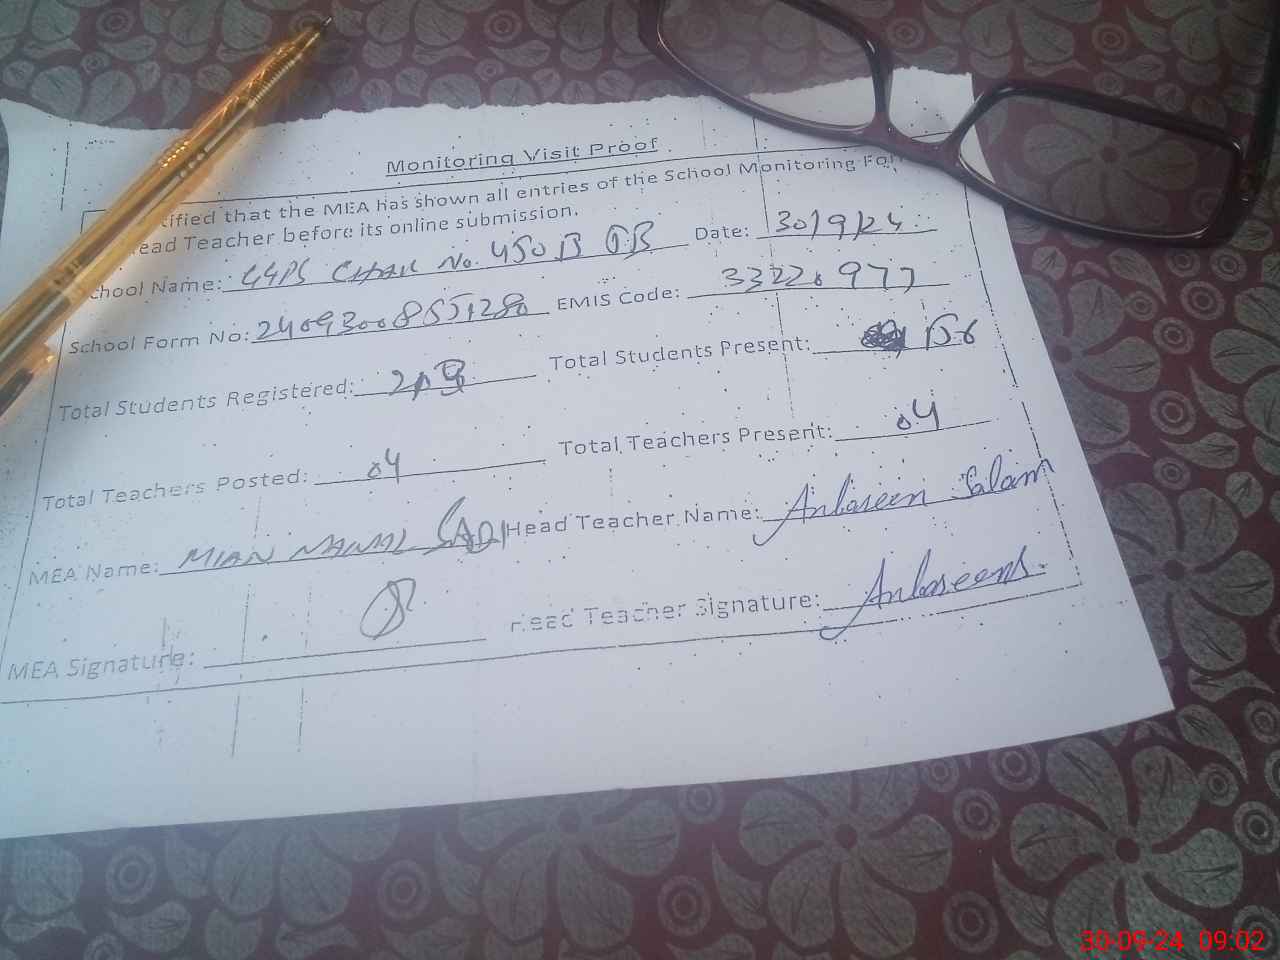 Monitoring Visit Proof
tified that the MEA has shown all entries of the School Monitoring For
ead Teacher before its online submission.
chool Name: GGPS CHAK No. 450 B Date: 30/9/24
School Form No: 2409300855128 EMIS Code: 33220977
Total Students Registered: Total Students Present:
Total Teachers Posted: 04 Total Teachers Present: 04
MEA Name: MIAN NAWAL SADI Head Teacher Name: Anbareen Salam
MEA Signature: Head Teacher Signature: Anbareens.
30-09-24 09:02